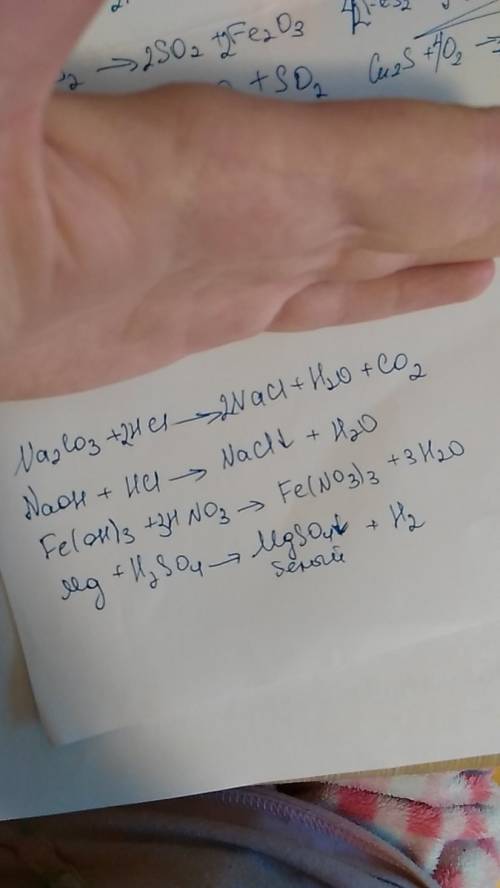 → 2SO₂ + 2Fe₂O₃
+ SO₂ Cu₂S + 4O₂ →
Na₂CO₃ + 2HCl → 2NaCl + H₂O + CO₂
NaOH + HCl → NaCl↓ + H₂O
Fe(OH)₃ + 3HNO₃ → Fe(NO₃)₃ + 3H₂O
Mg + H₂SO₄ → MgSO₄↓ + H₂
белый